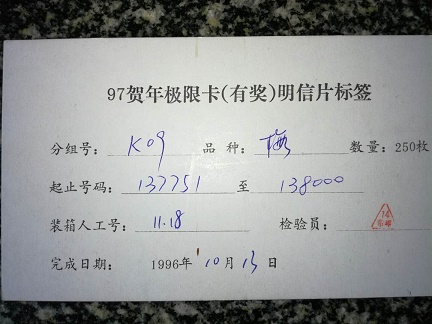 97贺年极限卡(有奖)明信片标签
分组号: K09 品种: 梅 数量: 250枚
起止号码: 137751 至 138000
装箱人工号: 11.18 检验员:
完成日期: 1996年 10月 13日